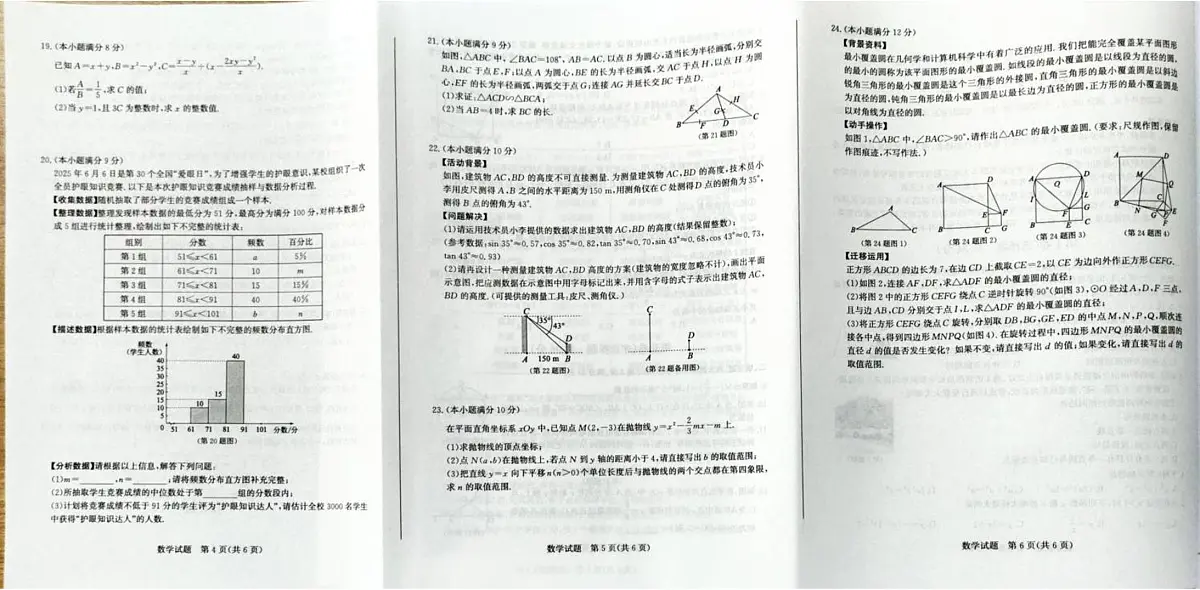 19.(本小题满分8分)
已知A=x+y,B=x²-y²,C=(x-y)/x÷(x-(2xy-y²)/x).
(1)若A/B=1/5,求C的值;
(2)当y=1,且3C为整数时,求x的整数值.
20.(本小题满分9分)
2025年6月6日是第30个全国“爱眼日”,为了增强学生的护眼意识,某校组织了一次
全员护眼知识竞赛.以下是本次护眼知识竞赛成绩抽样与数据分析过程.
【收集数据】随机抽取了部分学生的竞赛成绩组成一个样本.
【整理数据】整理发现样本数据的最低分为51分,最高分为满分100分,对样本数据分
成5组进行统计整理,绘制出如下不完整的统计表:
组别 分数 频数 百分比
第1组 51≤x<61 a 5%
第2组 61≤x<71 10 m
第3组 71≤x<81 15 15%
第4组 81≤x<91 40 40%
第5组 91≤x<101 b n
【描述数据】根据样本数据的统计表绘制如下不完整的频数分布直方图.
频数
(学生人数)
40
35
30
25
20
15
10
5
0
10
15
40
51 61 71 81 91 101 分数/分
(第20题图)
【分析数据】请根据以上信息,解答下列问题:
(1)m=______,n=______;请将频数分布直方图补充完整;
(2)所抽取学生竞赛成绩的中位数处于第______组的分数段内;
(3)计划将竞赛成绩不低于91分的学生评为“护眼知识达人”,请估计全校3000名学生
中获得“护眼知识达人”的人数.
数学试题 第4页(共6页)
21.(本小题满分9分)
如图,△ABC中,∠BAC=108°,AB=AC,以点B为圆心,适当长为半径画弧,分别交
BA,BC于点E,F;以点A为圆心,BE的长为半径画弧,交AC于点H,以点H为圆
心,EF的长为半径画弧,两弧交于点G;连接AG并延长交BC于点D.
(1)求证:△ACD∽△BCA;
(2)当AB=4时,求BC的长.
A
H
E
G
B
F
D
C
(第21题图)
22.(本小题满分10分)
【活动背景】
如图,建筑物AC,BD的高度不可直接测量.为测量建筑物AC,BD的高度,技术员小
李用皮尺测得A,B之间的水平距离为150m,用测角仪在C处测得D点的俯角为35°,
测得B点的俯角为43°.
【问题解决】
(1)请运用技术员小李提供的数据求出建筑物AC,BD的高度(结果保留整数);
(参考数据:sin35°≈0.57,cos35°≈0.82,tan35°≈0.70,sin43°≈0.68,cos43°≈0.73,
tan43°≈0.93)
(2)请再设计一种测量建筑物AC,BD高度的方案(建筑物的宽度忽略不计),画出平面
示意图,把应测数据在示意图中用字母标记出来,并用含字母的式子表示出建筑物AC,
BD的高度.(可提供的测量工具:皮尺、测角仪.)
C
35°
43°
D
A 150 m B
(第22题图)
C
D
A
B
(第22题备用图)
23.(本小题满分10分)
在平面直角坐标系xOy中,已知点M(2,-3)在抛物线y=x²-2/3mx-m上.
(1)求抛物线的顶点坐标;
(2)点N(a,b)在抛物线上,若点N到y轴的距离小于4,请直接写出b的取值范围;
(3)把直线y=x向下平移n(n>0)个单位长度后与抛物线的两个交点都在第四象限,
求n的取值范围.
数学试题 第5页(共6页)
24.(本小题满分12分)
【背景资料】
最小覆盖圆在几何学和计算机科学中有着广泛的应用.我们把能完全覆盖某平面图形
的最小的圆称为该平面图形的最小覆盖圆.如线段的最小覆盖圆是以线段为直径的圆,
锐角三角形的最小覆盖圆是这个三角形的外接圆,直角三角形的最小覆盖圆是以斜边
为直径的圆,钝角三角形的最小覆盖圆是以最长边为直径的圆,正方形的最小覆盖圆是
以对角线为直径的圆.
【动手操作】
如图1,△ABC中,∠BAC>90°,请作出△ABC的最小覆盖圆.(要求:尺规作图,保留
作图痕迹,不写作法.)
A
B
C
(第24题图1)
A
D
E
F
B
C
G
(第24题图2)
A
D
O
I
L
E
G
F
B
C
(第24题图3)
A
D
M
Q
E
B
N
C
G
F
(第24题图4)
【迁移运用】
正方形ABCD的边长为7,在边CD上截取CE=2,以CE为边向外作正方形CEFG.
(1)如图2,连接AF,DF,求△ADF的最小覆盖圆的直径;
(2)将图2中的正方形CEFG绕点C逆时针旋转90°(如图3),⊙O经过A,D,F三点,
且与边AB,CD分别交于点I,L,求△ADF的最小覆盖圆的直径;
(3)将正方形CEFG绕点C旋转,分别取DB,BG,GE,ED的中点M,N,P,Q,顺次连
接各中点,得到四边形MNPQ(如图4).在旋转过程中,四边形MNPQ的最小覆盖圆的
直径d的值是否发生变化?如果不变,请直接写出d的值;如果变化,请直接写出d的
取值范围.
数学试题 第6页(共6页)